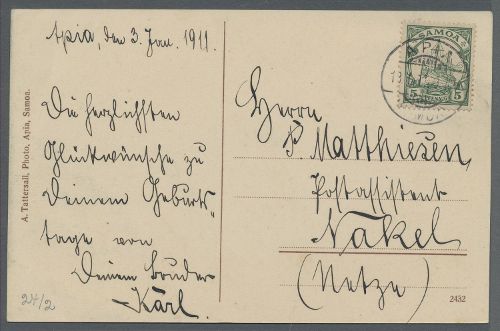 Apia, den 3 Jan. 1911.
Die herzlichsten
Glückwünsche zu
Deinem Geburts
tage von
Deinem Bruder
Karl.
Herrn
P. Matthiesen,
Postassistent
Nakel
(Netze)
SAMOA
5 5
APIA
A. Tattersall, Photo, Apia, Samoa.
2432
24/2